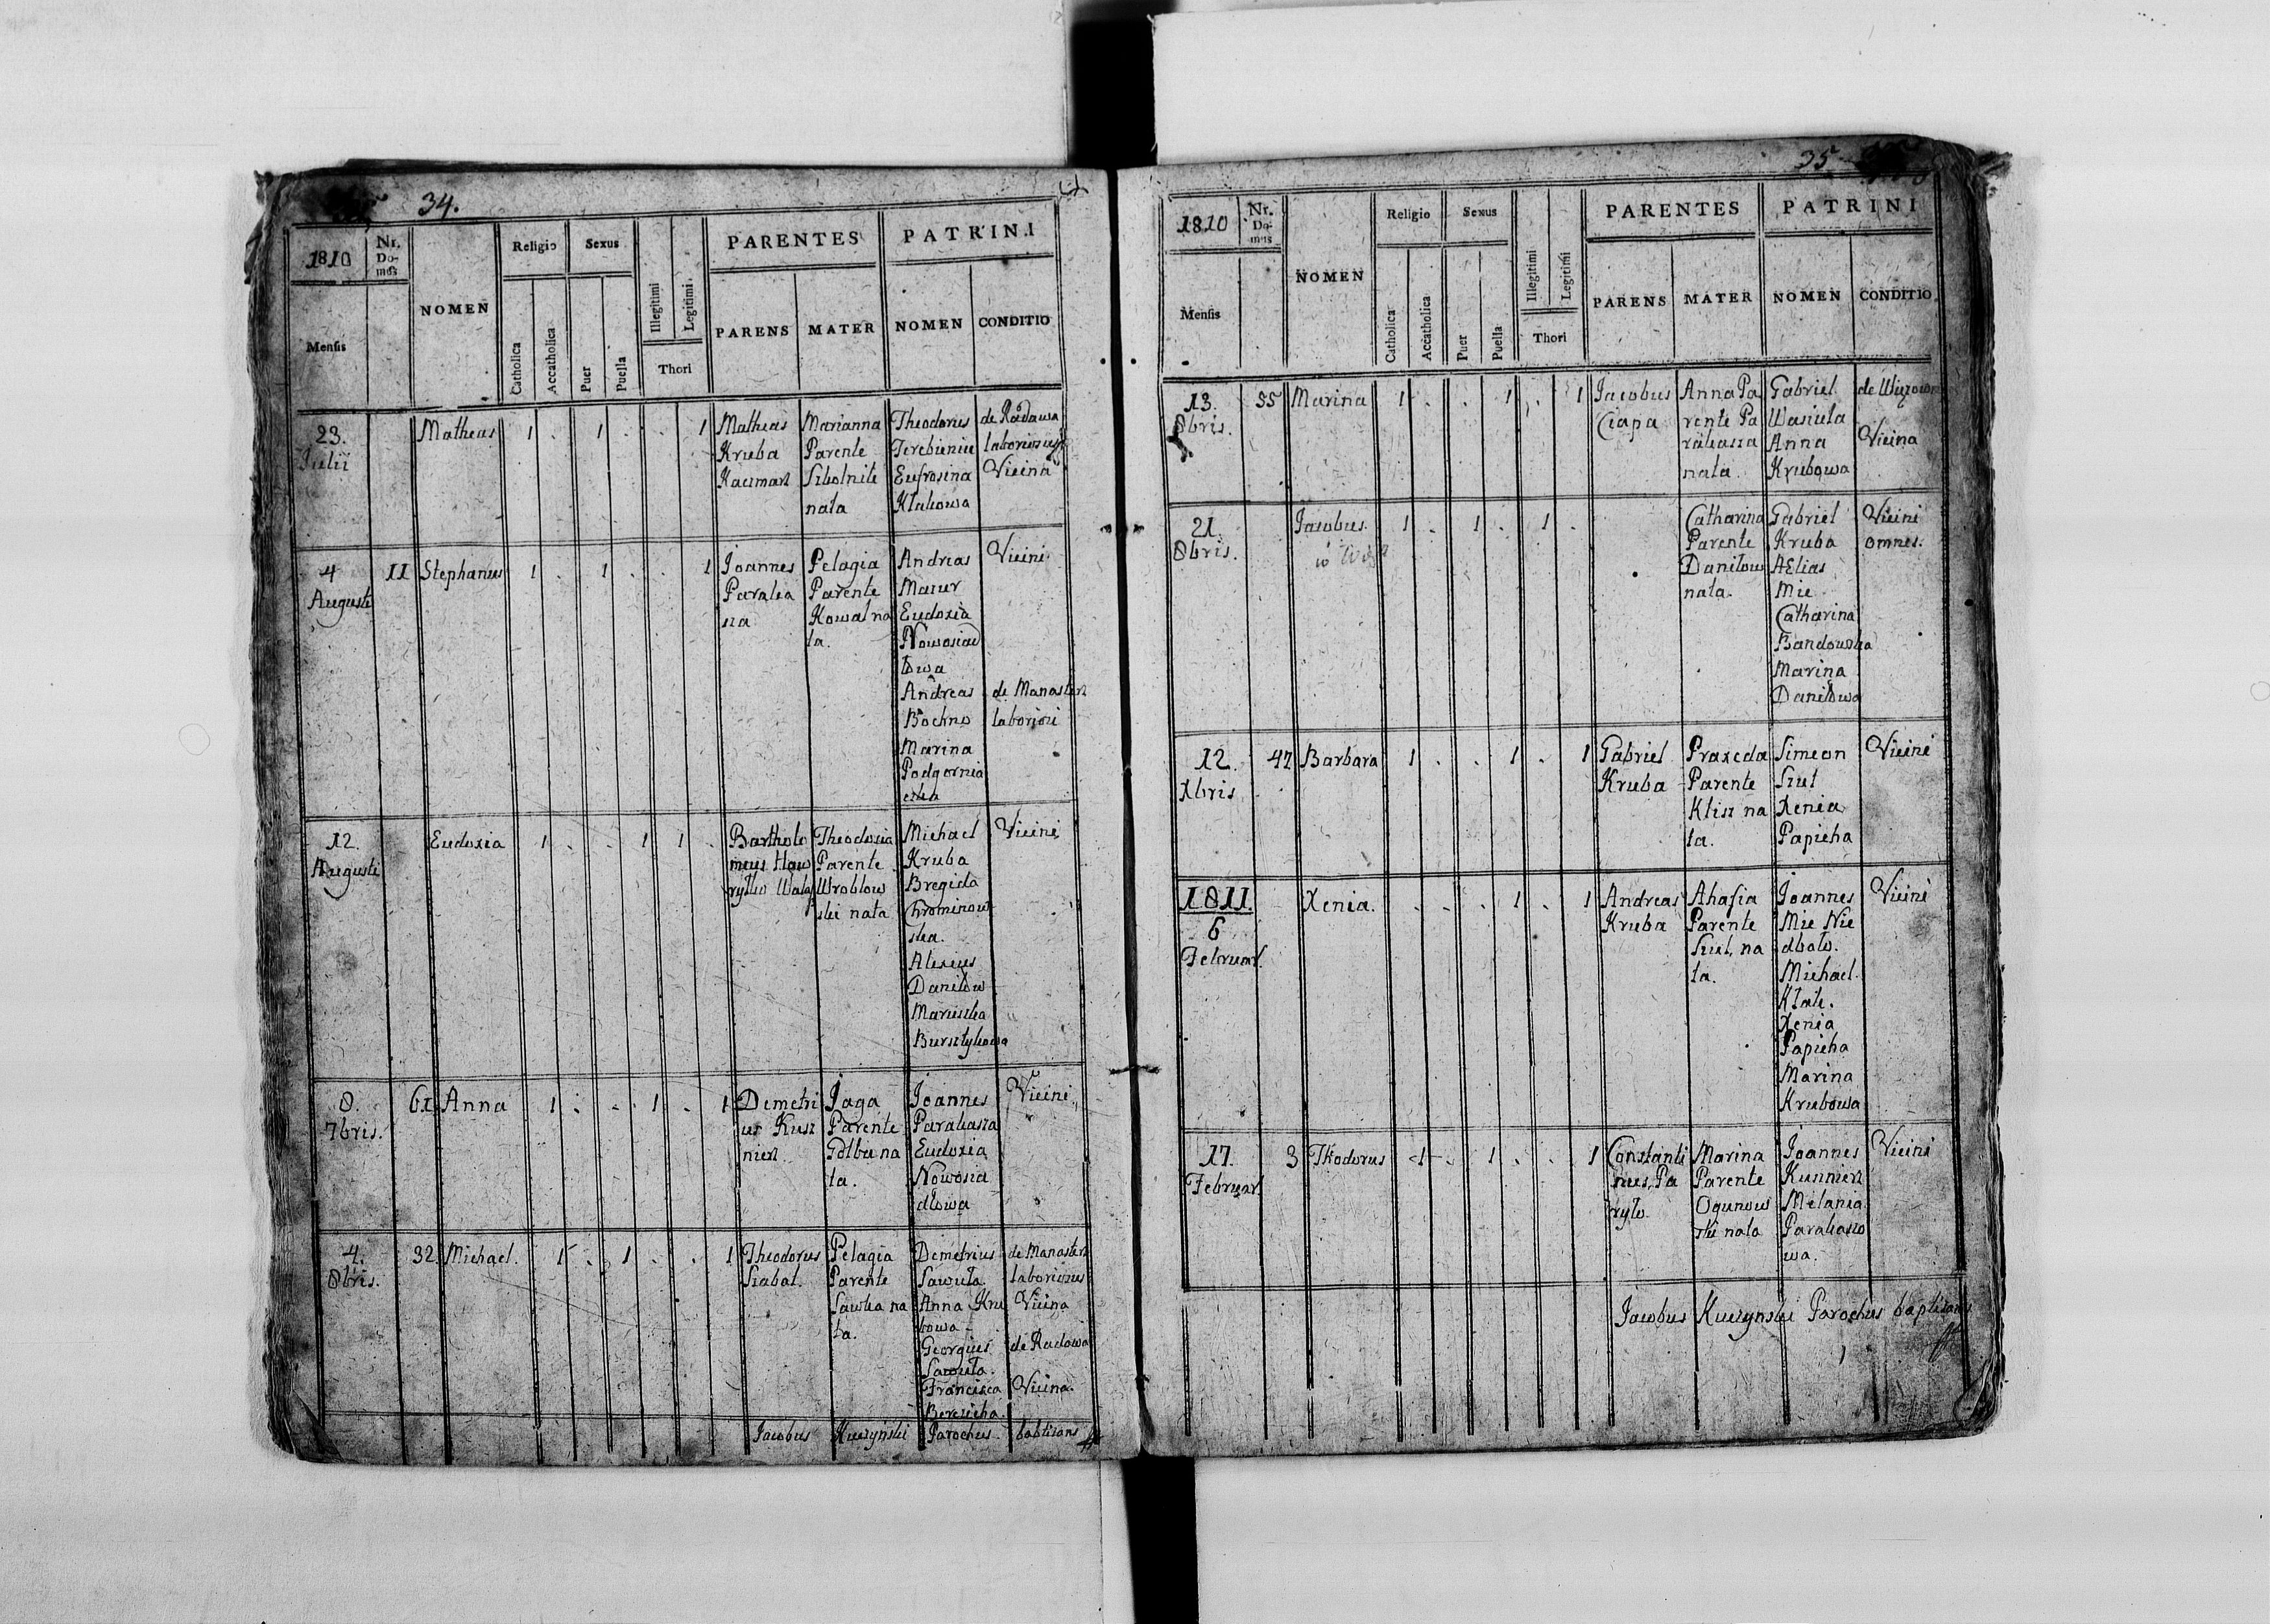 34.
1810
Nr. Do-mus
NOMEN
Religio
Sexus
Illegitimi
Legitimi
PARENTES
PATRINI
Mensis
Catholica
Accatholica
Puer
Puella
Thori
PARENS
MATER
NOMEN
CONDITIO
23. Julii
Matheus
1 . 1 . . 1
Matheus
Kruba
Kaczmarz
Marianna
Parente
nata
Theodorus
Eufrosina
de Radawa
laboriosus
Vicina
4 Augusti
11
Stephanus
1 . 1 . . 1
Joannes
Pelagia
Parente
Kowal na
ta.
Andreas
Mazur
Eudoxia
Nowosiad
łowa
Andreas
Bochno
Marina
Podgornia
Vicini
de Manasterz
laboriosi
12. Augusti
Eudoxia
1 . . 1 1 .
Bartholo
meus Haw
Theodosia
Parente
Wroblow
ski nata
Michael
Kruba
Bregida
Chrominow
ska.
Alexius
Daniłow
Maruszka
Vicini
8. 7bris.
61
Anna
1 . . 1 . 1
Demetri
us Kusz
nierz
Jaga
Parente
na
ta.
Joannes
Parakasza
Eudoxia
Nowosia
dłowa
Vicini
4. 8bris.
32.
Michael.
1 . 1 . . 1
Theodorus
Szabat.
Pelagia
Parente
Sawka na
ta.
Demetrius
Sawuła.
Anna Kru
bowa
Georgius
Sawuła.
Francisca
de Manasterz
laboriosus
Vicina
de Radawa
Vicina.
Jacobus Kuczynski Parochus baptisans
35
1810
Nr. Do-mus
NOMEN
Religio
Sexus
Illegitimi
Legitimi
PARENTES
PATRINI
Mensis
Catholica
Accatholica
Puer
Puella
Thori
PARENS
MATER
NOMEN
CONDITIO
13. 8bris.
55
Marina
1 . . 1 . 1
Jacobus
Ciapa
Anna Pa
rente Pa
rakasza
nata.
Gabriel
Wasiuta
Anna
Krubowa
Vicina
21. 8bris.
Jacobus.
1 . 1 . 1 .
Catharina
Parente
Daniłow
nata.
Gabriel
Kruba
AElias
Mic
Catharina
Bandowska
Marina
Daniłowa
Vicini
omnes.
12. Xbris
47
Barbara
1 . . 1 . 1
Gabriel
Kruba
Praxeda
Parente
Klisz na
ta.
Simeon
Szut
Xenia
Papieha
Vicini
1811.
6 Februar.
Xenia.
. . . 1 . 1
Andreas
Kruba
Ahafia
Parente
Szut na
ta.
Joannes
Mic Nie
dbało.
Michael.
Kłak.
Xenia
Papieha
Marina
Krubowa
Vicini
17. Februar.
3
Theodorus
1 . 1 . . 1
Constanti
nus Pa
ryło.
Marina
Parente
Ogunow
ski nata
Joannes
Melania
Parakaszo
wa.
Vicini
Jacobus Kuczynski Parochus baptisans